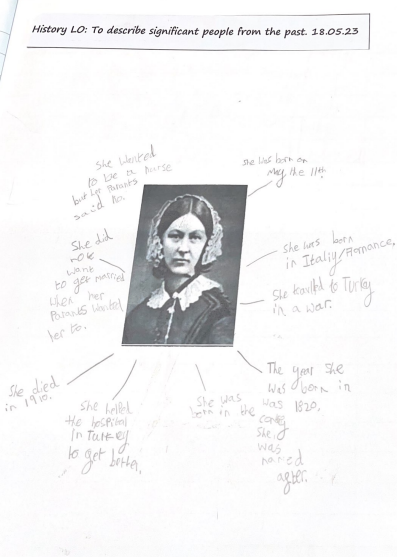 History LO: To describe significant people from the past. 18.05.23
She wanted
to be a nurse
but her parants
said no.
She was born on
May the 11th
She did
not
want
to get married
when her
Parants wanted
her to.
She was born
in Italiy/Romance,
She travlld to Turkey
in a war.
She died
in 1910.
She helled
the hospital
in Turkey
to get better.
She was
born in the
The year she
was born in
was 1820.
contry
She
was
named
after.